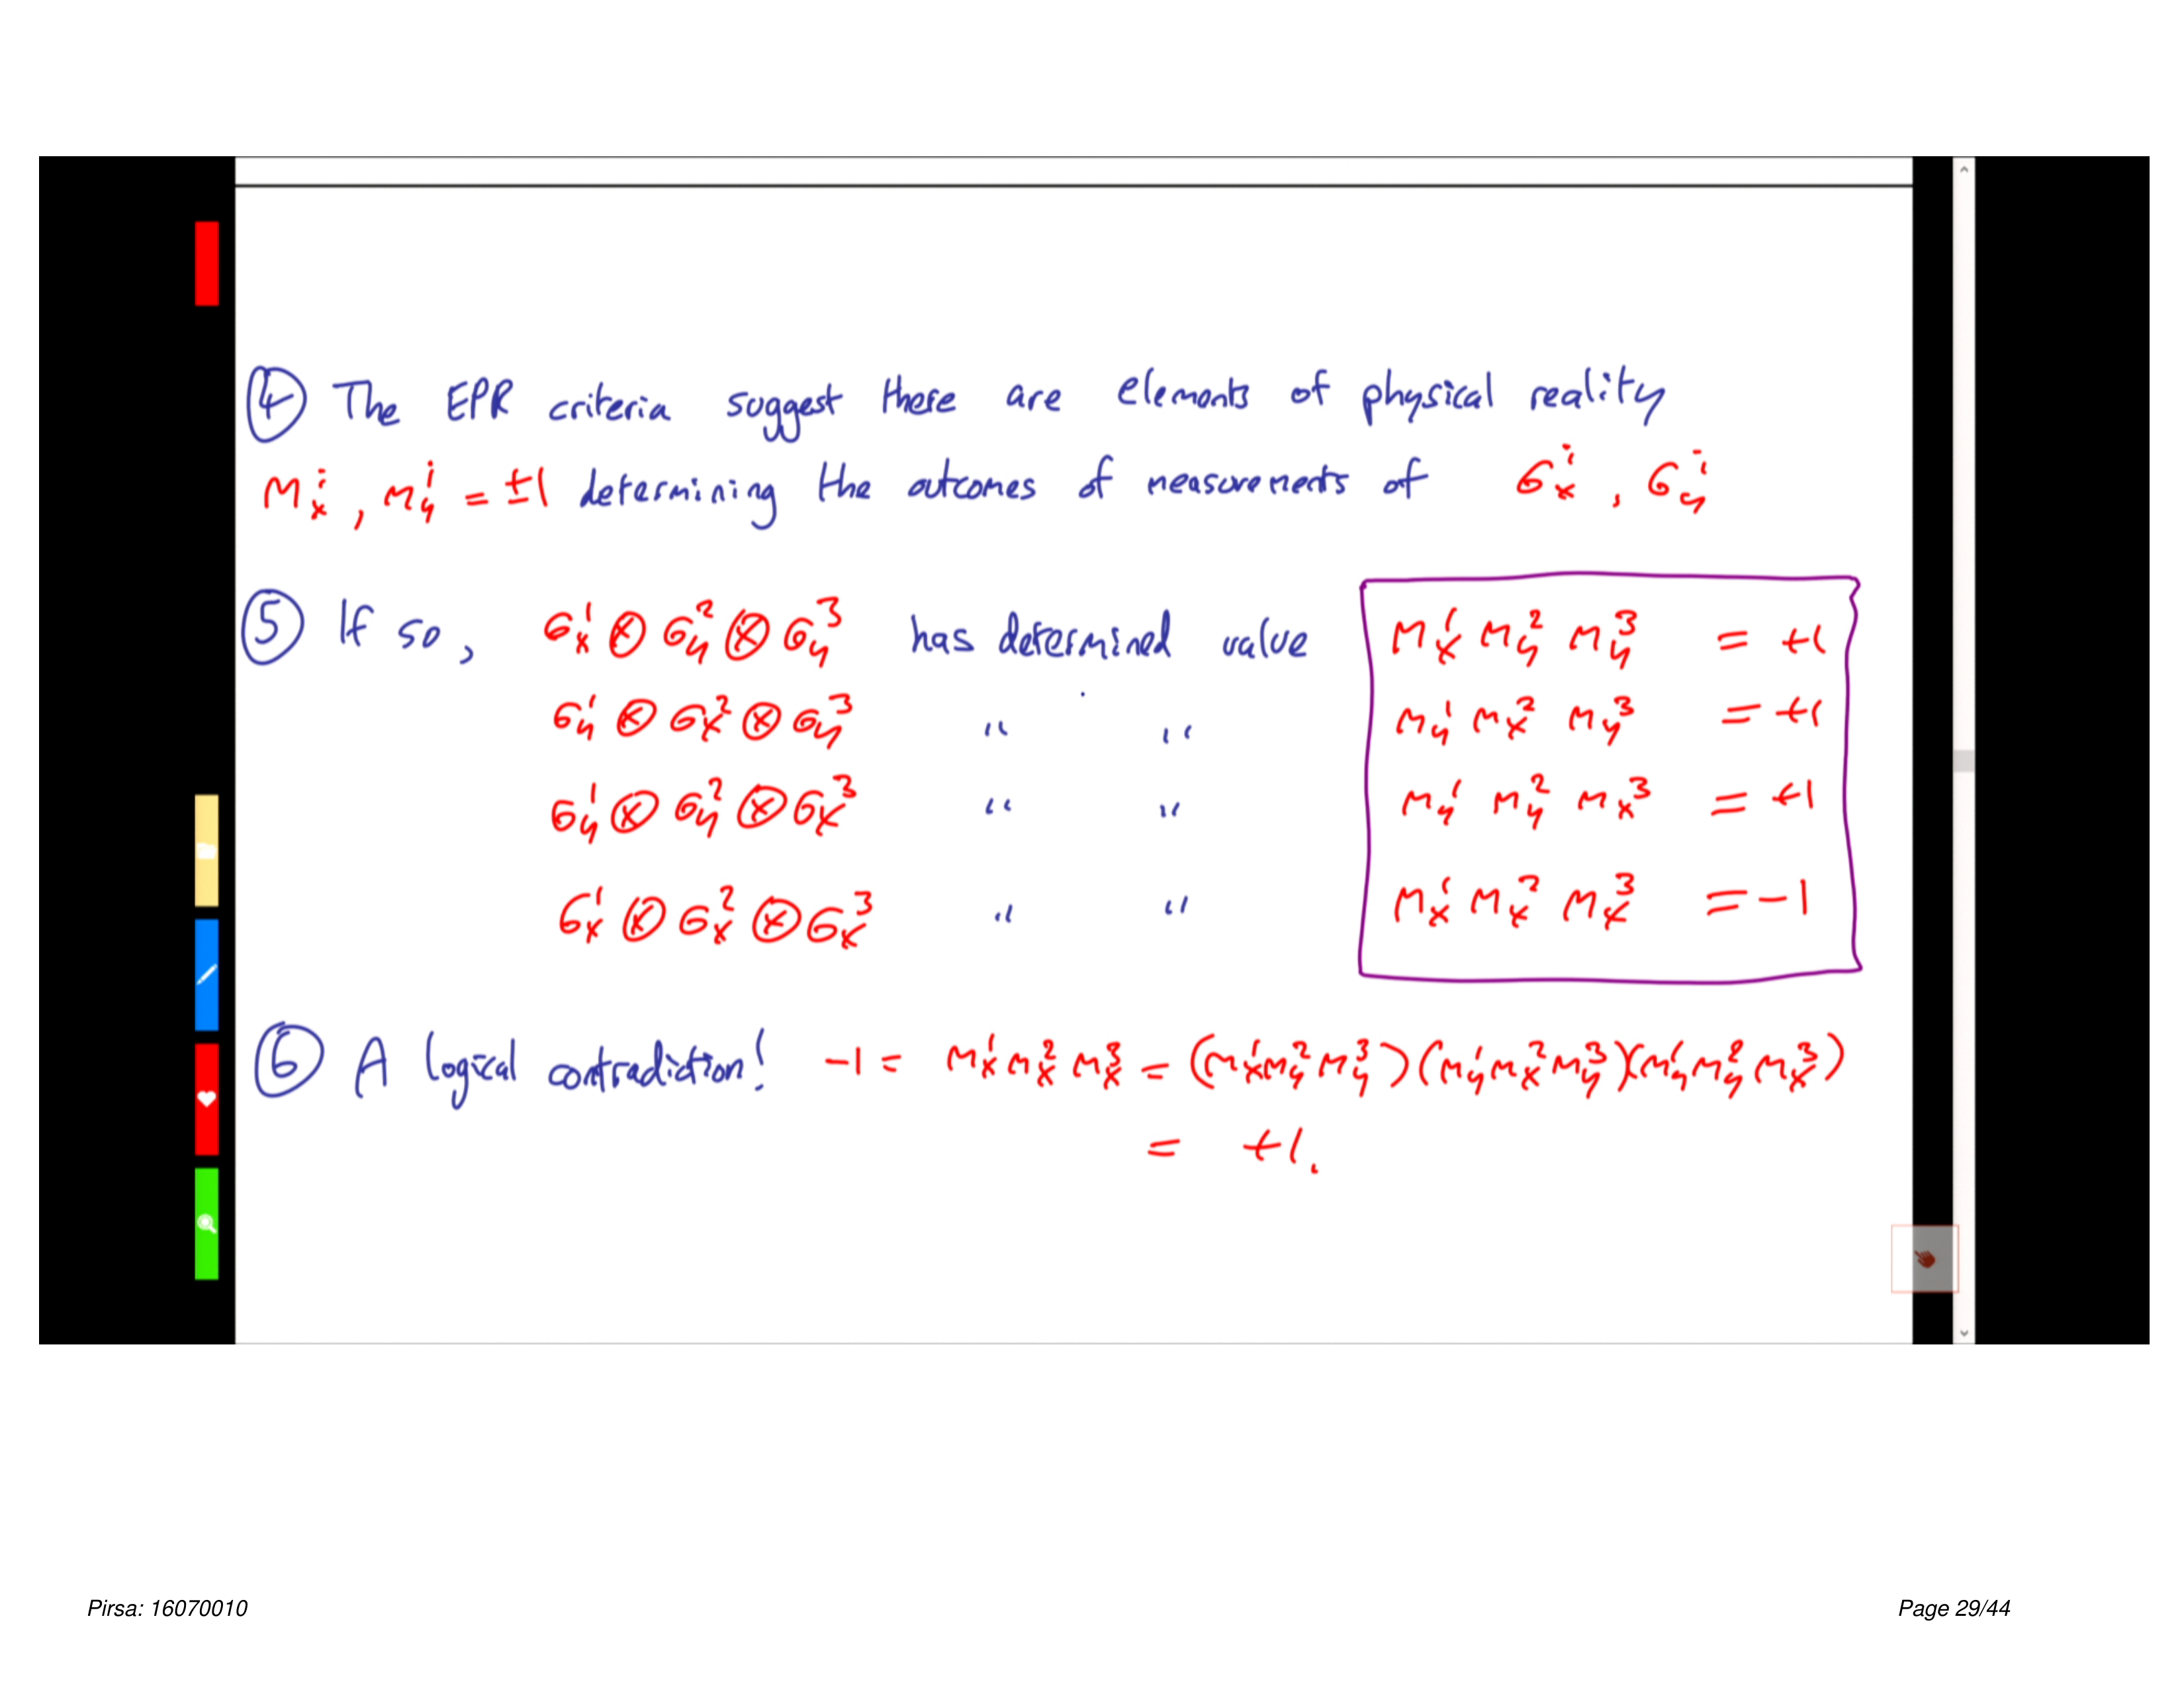 ④ The EPR criteria suggest there are elements of physical reality
mₓⁱ, m_yⁱ = ±1 determining the outcomes of measurements of σₓⁱ, σ_yⁱ
⑤ If so, σₓ¹ ⊗ σ_y² ⊗ σ_y³ has determined value mₓ¹ m_y² m_y³ = +1
σ_y¹ ⊗ σₓ² ⊗ σ_y³ " " m_y¹ mₓ² m_y³ = +1
σ_y¹ ⊗ σ_y² ⊗ σₓ³ " " m_y¹ m_y² mₓ³ = +1
σₓ¹ ⊗ σₓ² ⊗ σₓ³ " " mₓ¹ mₓ² mₓ³ = -1
⑥ A logical contradiction! -1 = mₓ¹ mₓ² mₓ³ = (mₓ¹ m_y² m_y³)(m_y¹ mₓ² m_y³)(m_y¹ m_y² mₓ³)
= +1.
Pirsa: 16070010 Page 29/44